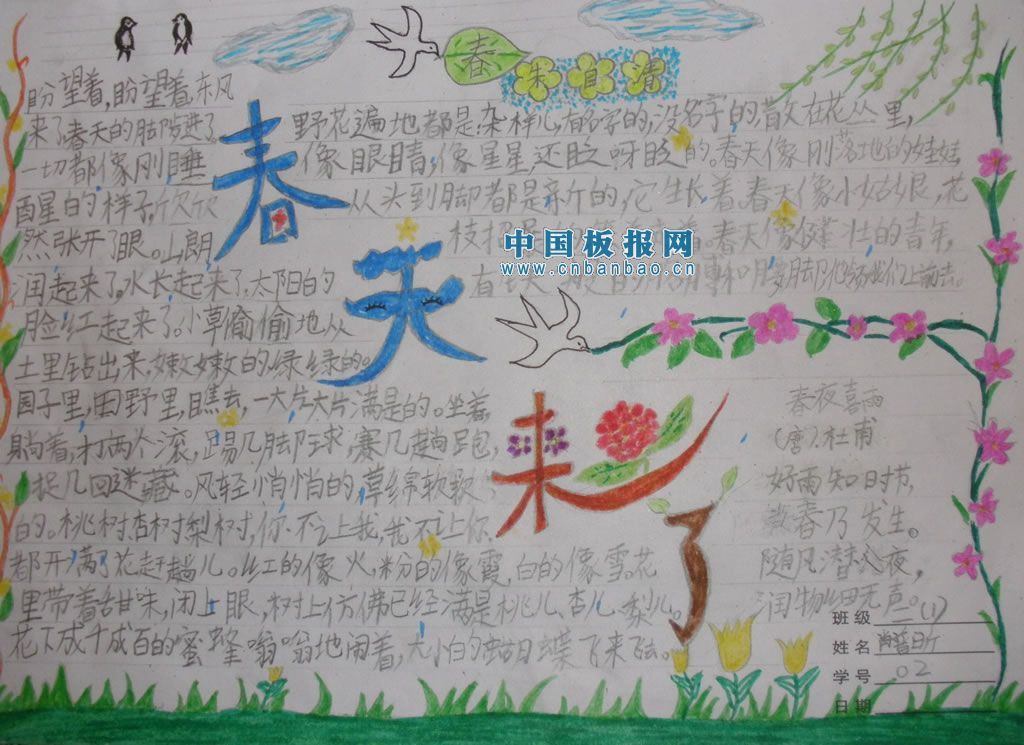 春
朱自清
盼望着,盼望着,东风
来了,春天的脚步近了
一切都像刚睡
醒的样子,欣欣
然张开了眼。山朗
润起来了。水长起来了,太阳的
脸红起来了。小草偷偷地从
土里钻出来,嫩嫩的,绿绿的。
园子里,田野里,瞧去,一大片大片满是的。坐着,
躺着,打两个滚,踢几脚球,赛几趟跑,
捉几回迷藏。风轻悄悄的,草绵软软
的。桃树杏树梨树,你不让我,我不让你,
都开满了花赶趟儿。红的像火,粉的像霞,白的像雪。花
里带着甜味,闭上眼,树上仿佛已经满是桃儿、杏儿、梨儿。
花下成千成百的蜜蜂嗡嗡地闹着,大小的蝴蝶飞来飞去。
野花遍地都是:杂样儿,有名字的,没名字的,散文在花丛里,
像眼睛,像星星,还眨呀眨的。春天像刚落地的娃娃
从头到脚都是新的,它生长着。春天像小姑娘,花
枝招 春天像健壮的青年,
有铁 般的 和腰脚,他领我们上前去。
春天来了
中国板报网
www.cnbanbao.cn
春夜喜雨
(唐).杜甫
好雨知时节,
春乃发生。
随风潜入夜,
润物细无声。
班级 二(1)
姓名
学号 02
日期